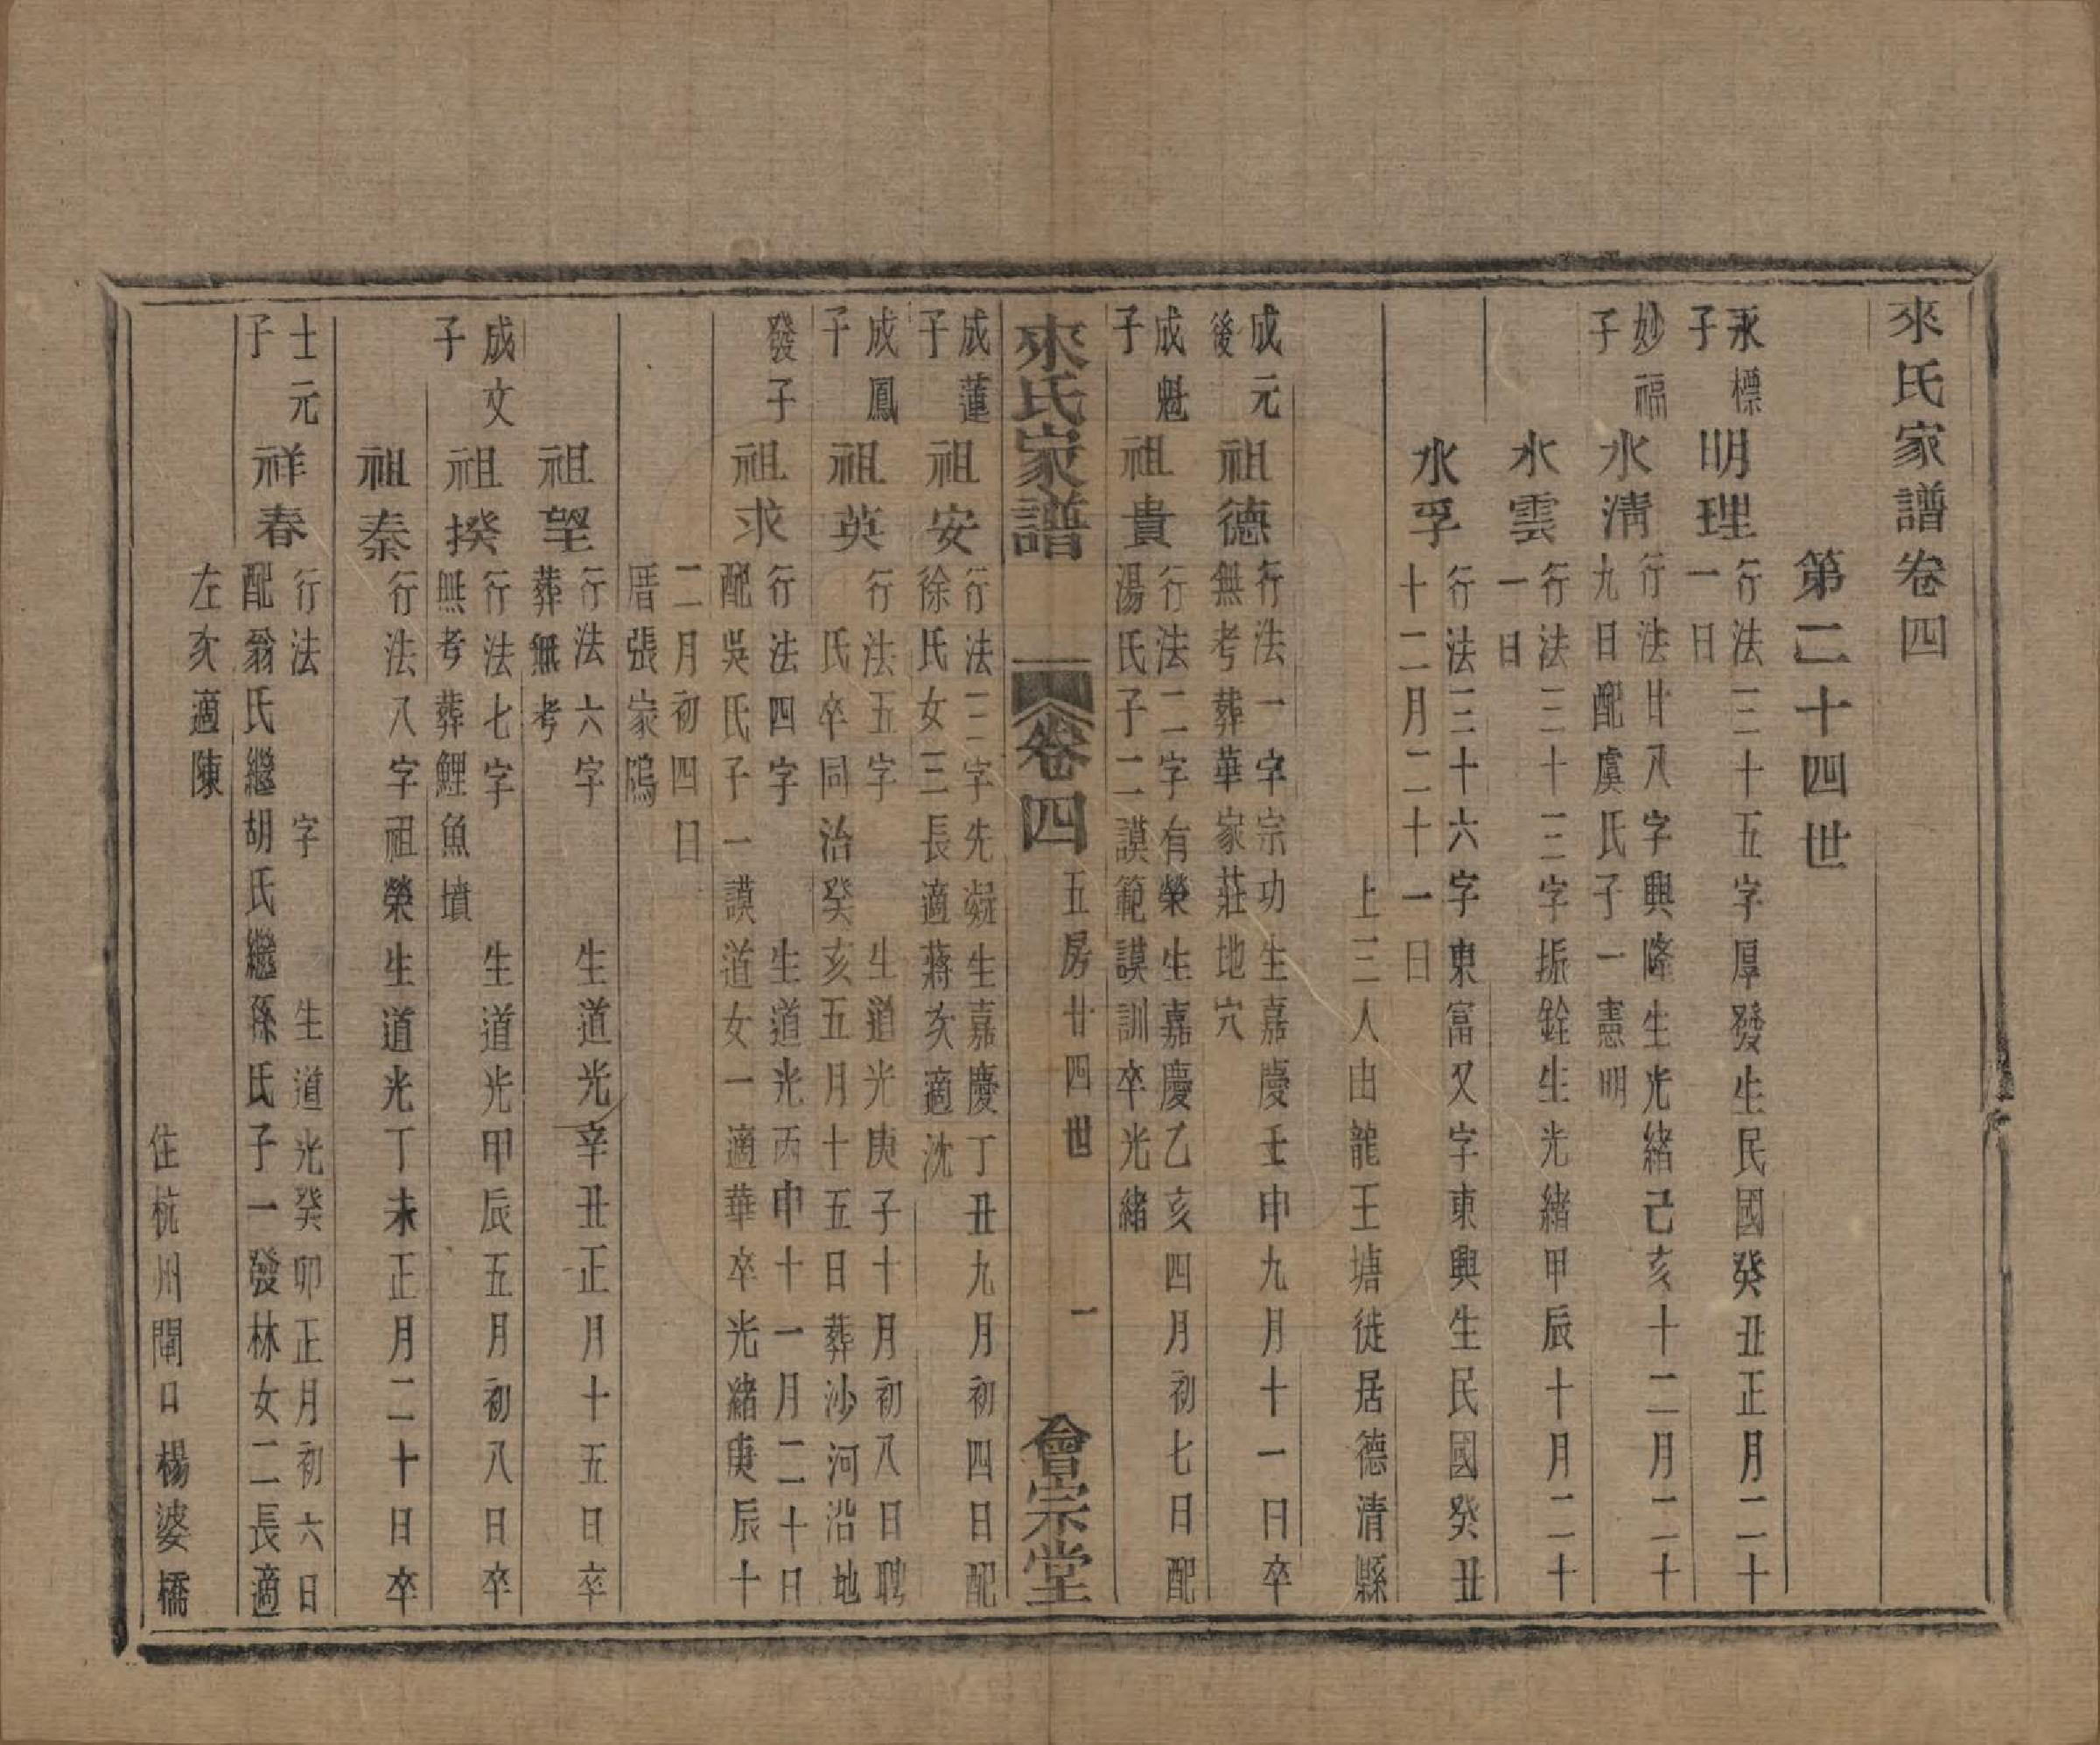 來氏家譜卷四
第二十四世
永標
子
明理
行法三十五字厚發生民國癸丑正月二十
一日
妙福
子
水清
行法廿八字興隆生光緒己亥十二月二十
九日配虞氏子一憲明
水雲
行法三十三字振銓生光緒甲辰十月二十
一日
水孚
行法三十六字東富又字東興生民國癸丑
十二月二十一日
上三人由龍王塘徙居德清縣
成元
後
祖德
行法一字宗功生嘉慶壬申九月十一日卒
無考葬華家莊地穴
成魁
子
祖貴
行法二字有榮生嘉慶乙亥四月初七日配
湯氏子二謨範謨訓卒光緒
來氏家譜
卷四
五房廿四世
一
會宗堂
成蓮
子
祖安
行法三字先凝生嘉慶丁丑九月初四日配
徐氏女三長適蔣次適沈
成鳳
子
祖英
行法五字生道光庚子十月初八日聘
氏卒同治癸亥五月十五日葬沙河沿地
發子
祖求
行法四字生道光丙申十一月二十日
配吳氏子一謨道女一適華卒光緒庚辰十
二月初四日
厝張家隖
祖望
行法六字生道光辛丑正月十五日卒
葬無考
成文
子
祖揆
行法七字生道光甲辰五月初八日卒
無考葬鯉魚墳
祖秦
行法八字祖榮生道光丁未正月二十日卒
士元
子
祥春
行法字生道光癸卯正月初六日
配翁氏繼胡氏繼孫氏子一發林女二長適
左次適陳
住杭州閘口楊婆橋